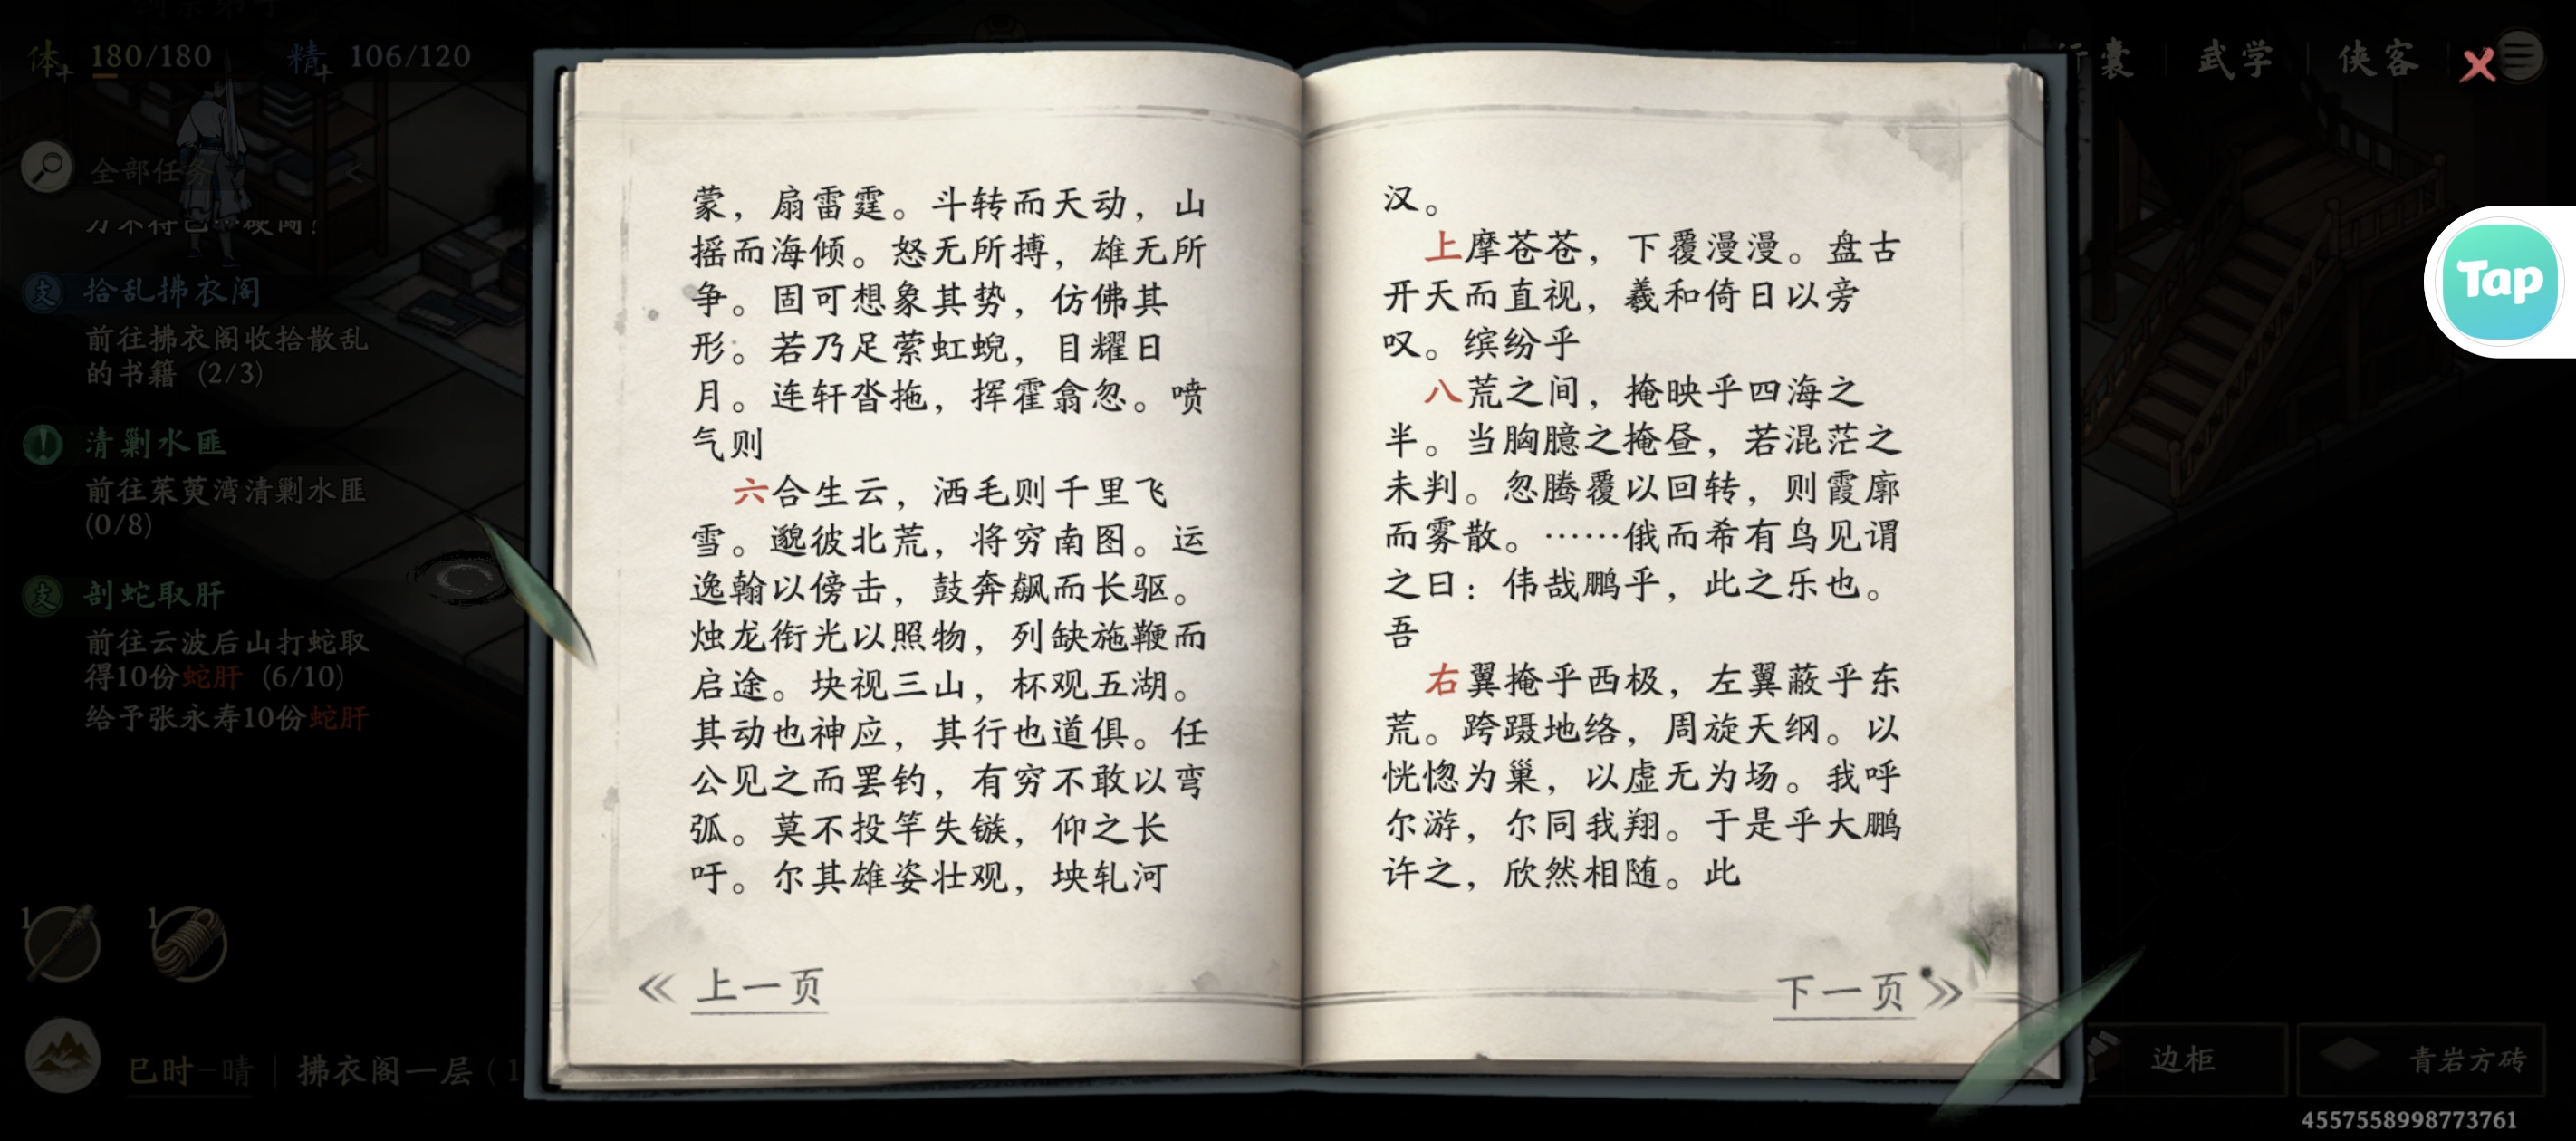 体 180/180 精 106/120
行囊 武学 侠客
全部任务
拾乱拂衣阁
前往拂衣阁收拾散乱
的书籍 (2/3)
清剿水匪
前往茱萸湾清剿水匪
(0/8)
剖蛇取肝
前往云波后山打蛇取
得10份蛇肝 (6/10)
给予张永寿10份蛇肝
1 1
巳时-晴 | 拂衣阁一层 (1
蒙，扇雷霆。斗转而天动，山
摇而海倾。怒无所搏，雄无所
争。固可想象其势，仿佛其
形。若乃足萦虹蜺，目耀日
月。连轩沓拖，挥霍翕忽。喷
气则
六合生云，洒毛则千里飞
雪。邈彼北荒，将穷南图。运
逸翰以傍击，鼓奔飙而长驱。
烛龙衔光以照物，列缺施鞭而
启途。块视三山，杯观五湖。
其动也神应，其行也道俱。任
公见之而罢钓，有穷不敢以弯
弧。莫不投竿失镞，仰之长
吁。尔其雄姿壮观，坱轧河
《 上一页
汉。
上摩苍苍，下覆漫漫。盘古
开天而直视，羲和倚日以旁
叹。缤纷乎
八荒之间，掩映乎四海之
半。当胸臆之掩昼，若混茫之
未判。忽腾覆以回转，则霞廓
而雾散。……俄而希有鸟见谓
之曰：伟哉鹏乎，此之乐也。
吾
右翼掩乎西极，左翼蔽乎东
荒。跨蹑地络，周旋天纲。以
恍惚为巢，以虚无为场。我呼
尔游，尔同我翔。于是乎大鹏
许之，欣然相随。此
下一页 》
Tap
边柜
青岩方砖
4557558998773761